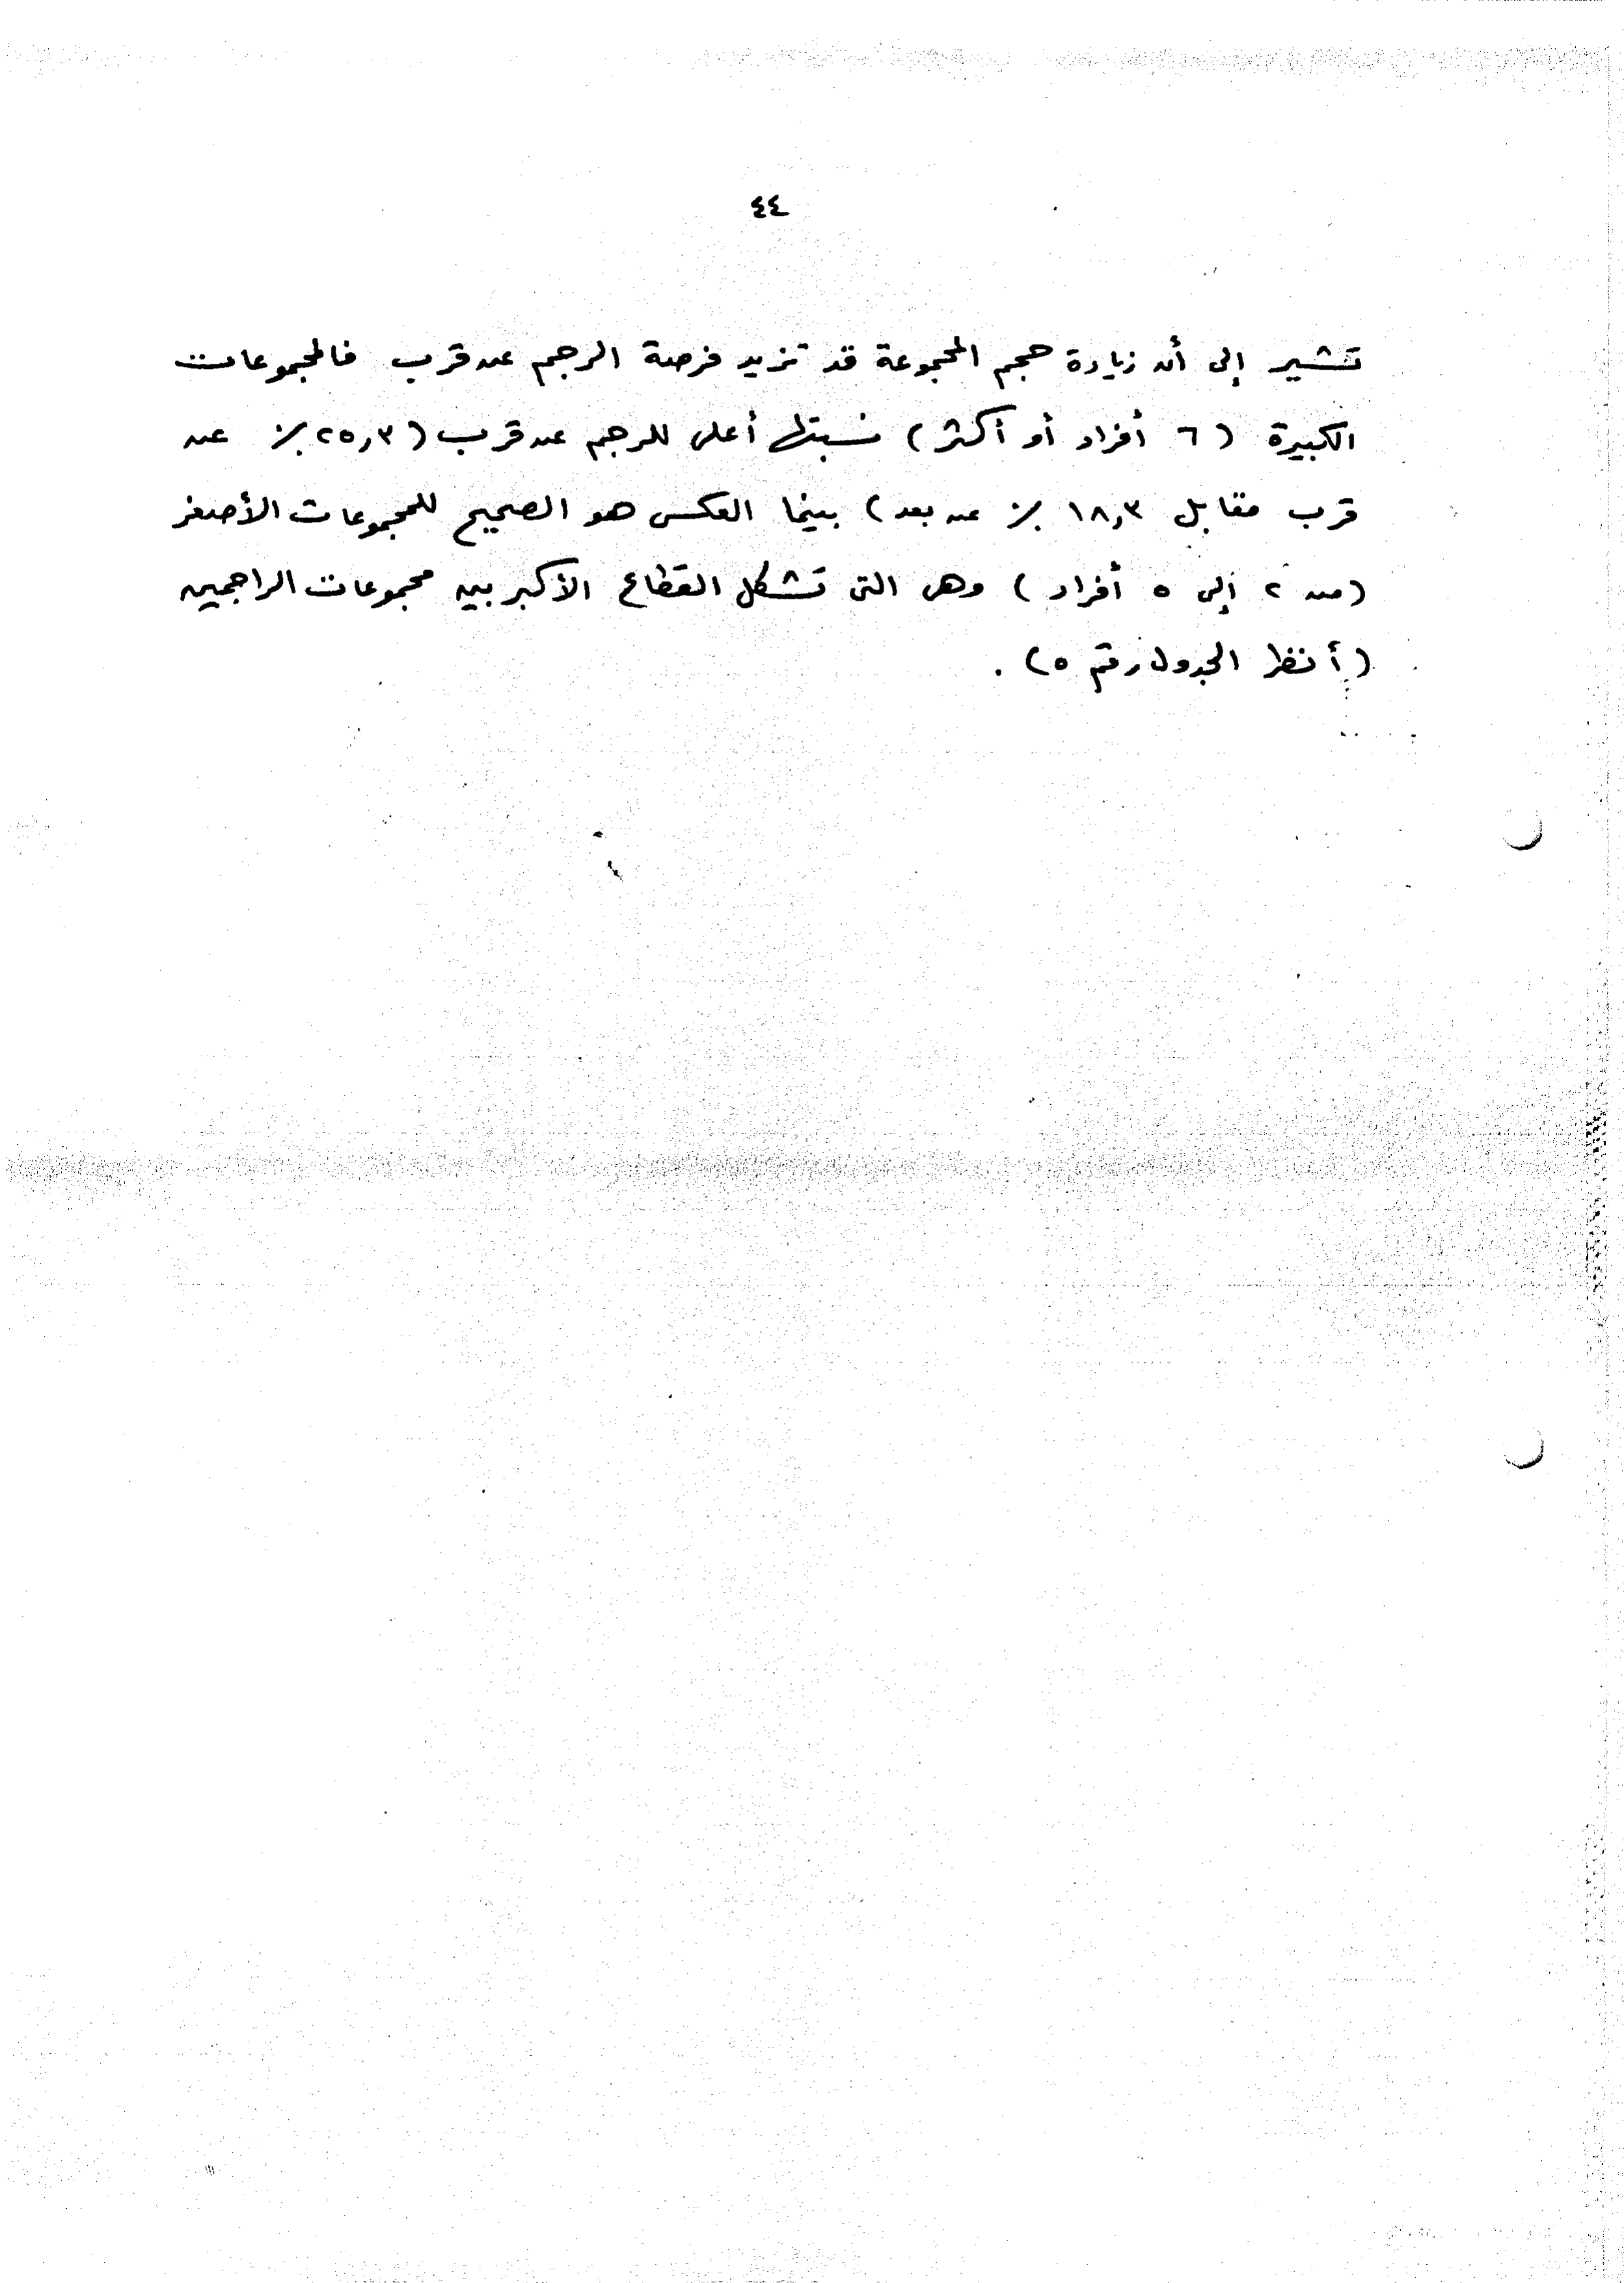 ٤٤
تشير إلى أن زيادة حجم المجموعة قد تزيد فرصة الرجم عن قرب فالمجموعات
الكبيرة (٦ أفراد أو أكثر) نسبتها أعلى للرجم عن قرب (٢٥,٣٪ عن
قرب مقابل ١٨,٣٪ عن بعد) بينما العكس هو الصحيح للمجموعات الأصغر
(من ٢ إلى ٥ أفراد) وهى التى تشكل القطاع الأكبر بين مجموعات الراجمين
(أنظر الجدول رقم ٥).